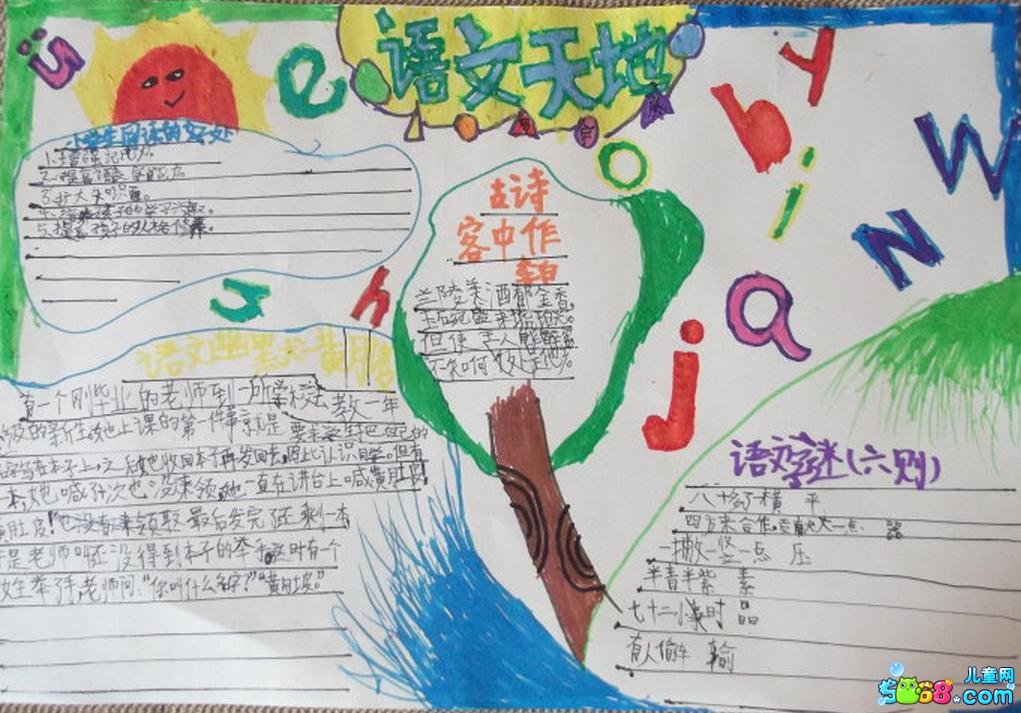 语文天地
小学生阅读的好处
1.增强记忆力。
2.提高语言学习能力
3.扩大知识面。
4.孩子的学习兴趣。
5.提高孩子的人格修养。
古诗
客中作
李白
兰陵美酒郁金香,
玉碗盛来琥珀光。
但使主人能醉客
不知何处是他乡。
语文幽默 黄月坡
有一个刚毕业的老师到一所学校去教一年
级的新生她上课的第一件事就是要求学生把自己的
名字写在本子上,之后她收回本子再发回去,因此认识同学。但有
本,她喊好次也没来领,她一直在讲台上喊黄肚皮
黄肚皮!也没有来领取最后发完还剩一本
于是老师叫还没得到本子的举手,这时有一个
女生举手,老师问:“你叫什么名字?”“黄月坡。”
语文字谜(六则)
八十多了横 平
四方来合作,贡献大一点 器
一撇一竖一点 压
半青半紫 素
七十二小时 晶
有人偷车 输
e
o
b
y
i
W
N
a
j
h
5068.com
儿童网